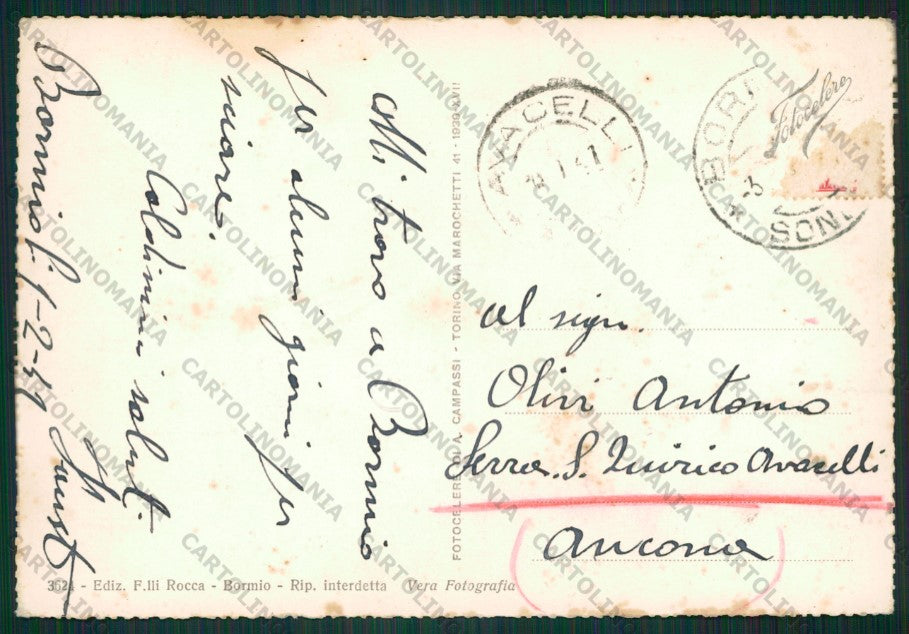 Mi trovo a Bormio
per alcuni giorni per
sciare.
Caldissimi saluti.
Fausto
Bormio li 1-2-41
FOTOCELERE DI A. CAMPASSI - TORINO, VIA MAROCHETTI 41 - 1939-XVII
AVACELLI
BORMIO
SON
Fotocelere
al sign.
Olivi Antonio
Serra S. Quirico Avacelli
Ancona
3624 - Ediz. F.lli Rocca - Bormio - Rip. interdetta Vera Fotografia
CARTOLINOMANIA